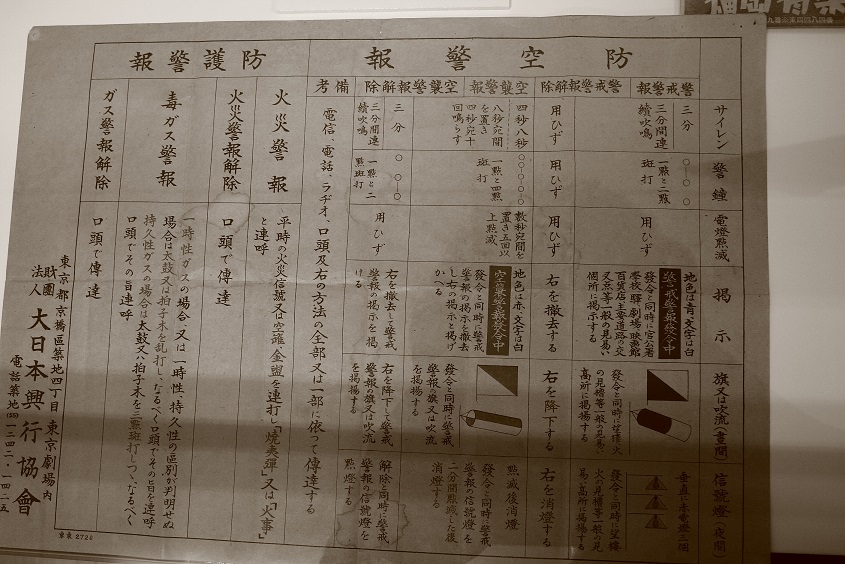 防空警報
防護警報
サイレン
警鐘
電燈點滅
掲示
旗又は吹流(晝間)
信號燈(夜間)
警戒警報
三分
三分間連
續吹鳴
〇 〇―〇
一點と二點
斑打
用ひず
地色は青、文字は白
警戒警報發令中
發令と同時に官公署
學校驛劇場映畫館
百貨店主要道路の交
叉点等一般の見易い
個所に掲示する
發令と同時に望樓火
の見櫓等一般の見易い
高所に掲揚する
垂直に赤電燈三個
發令と同時に望樓
火の見櫓等一般の見
易い高所に掲揚する
警戒警報解除
用ひず
用ひず
用ひず
右を撤去する
右を降下する
右を消燈する
空襲警報
四秒八秒
八秒宛間
を置き
四秒宛十
回鳴らす
〇 〇―〇―〇―〇
一點と四點
斑打
數秒宛間を
置き五回以
上點滅
地色は赤、文字は白
空襲警報發令中
發令と同時に警戒
警報の掲示を撤去
し右の掲示と掲げ
かへる
發令と同時に警戒
警報の旗又は吹流
を掲揚する
點滅後消燈
發令と同時に警戒
警報の信號燈を
二分間點滅した後
消燈する
空襲警報解除
三分
三分間連
續吹鳴
〇 〇―〇
一點と二
點斑打
用ひず
右を撤去して警戒
警報の掲示を掲
ける
右を降下して警戒
警報の旗又は吹流
を掲揚する
解除と同時に警戒
警報の信號燈を
點燈する
備考
電信、電話、ラヂオ、口頭及右の方法の全部又は一部に依つて傳達する
火災警報
平時の火災信號又は空罐金盥を連打し「燒夷彈」又は「火事」
と連呼
火災警報解除
口頭で傳達
毒ガス警報
一時性ガスの場合又は一時性、持久性の區別が判明せぬ
場合は太鼓又は拍子木を亂打し、なるべく口頭でその旨を連呼
持久性ガスの場合は太鼓又は拍子木を三點斑打しつゝ、なるべく
口頭でその旨連呼
ガス警報解除
口頭で傳達
東京都京橋區築地四丁目 東京劇場内
財團
法人
大日本興行協會
電話築地(55)一三四二・一四二五
東京 2720